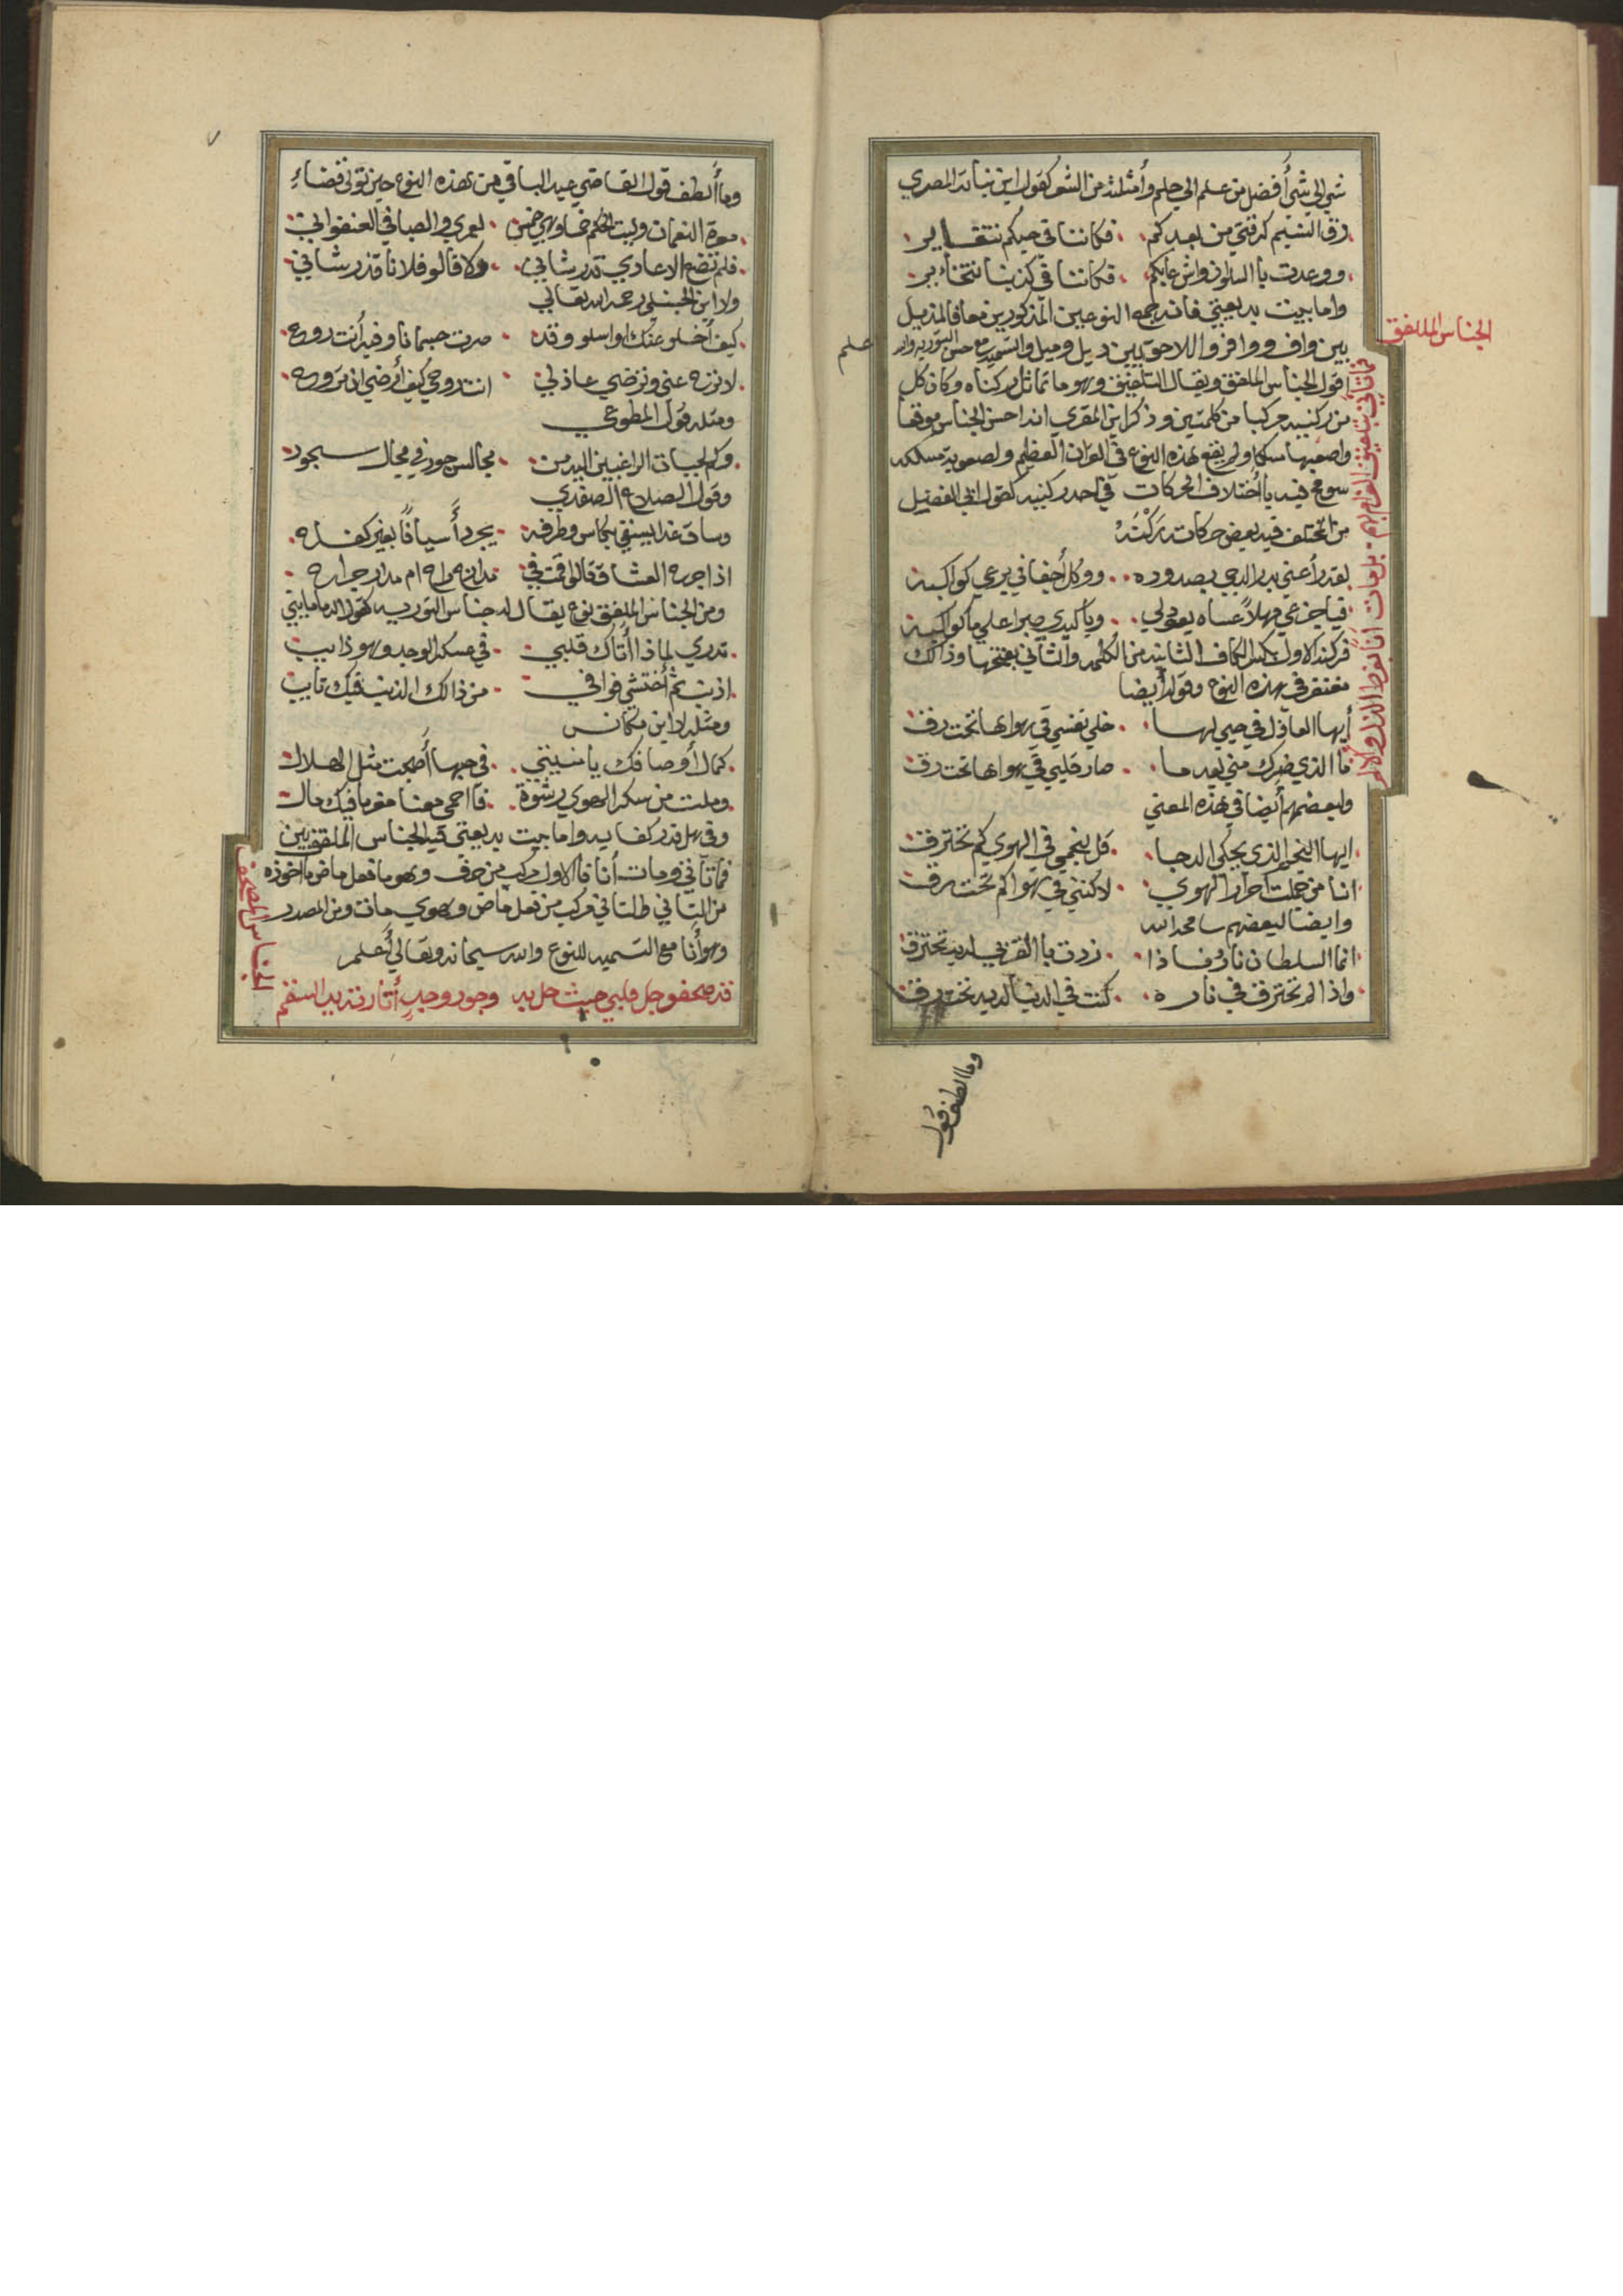 شيء الي شيء أفضل من علم الي حلم وأمثلته من الشعر كقول ابن نباتة المصري
رق النسيم كرقتي من بعدكم فكاننا في حيكم نتغاير
ووعدت باالسلوان واش عابكم فكاننا في كذبنا نتخابر
واما بيت بديعيتي فانه جمع النوعين المذكورين معا فالمذيل
بين واف ووافر واللاحق بين ديل وميل والتسمية مع حسن التورية والله
علم
الجناس الملفق
اقول الجناس الملفق ويقال التلفيق وهو ما تماثل ركناه وكان كل
من ركنيه مركبا من كلمتين وذكر ابن المقري انه احسن الجناس موقعا
واصعبها مسلكا ولم يقع هذه النوع في القران العظيم ولصعوبة مسلكه
سومح فيه باأختلاف الحركات في احد ركنيه كقول ابي الفضيل
من اختلف فيه بعض حركات ركنه
لقد راعني بدر الدجي بصدوده ووكل أجفاني برعي كواكبه
فيا جزعي مهلاً عساه يعود لي ويا كبدي صبرا علي ما كواك به
فركنه الاول بكسر الكاف الثانية من الكلمة والثاني بفتحها وذالك
مغتفر في هذه النوع وقوله أيضا
أيها العاذل في حبي لها خلي نفسي في هواها تحترق
ما الذي ضرك مني بعد ما صار قلبي في هواها تحت رق
ولبعضهم أيضا في هذه المعني
ايها النجم الذي يحكي الدجا قل لنجمي في الهوي كم تحترق
انا من جملت احرار الهوي لاكنني في هواكم تحت رق
وايضا لبعضهم سامحه الله
انما السلطان نار فاذا زدت باالقرب لديه تحترق
واذا لم تحترق في ناره كنت في الدنيا لديه تحت رق
وما الطف قول
وما ألطف قول القاضي عبد الباقي من هذه النوع حين تولى قضاء
معرة النعمان
فلم تضع الاعادي قدر شاني ولا قالو فلانا قد رشاني
ولابن الحنبلي رحمه الله تعالي
كيف أخلو عنك او اسلو وقد
لا تزه عني وترضي عاذلي انت روحي كيف أرضي ان تروح
ومثله قول المطوعي
وكم لجباه الراغبين اليه من مجالس جود في مجال سجود
وقول الصلاح الصفدي
وساق غدا يسقي بكاس وطرفه يجرد أسيافاً بغير كفاح
اذا جرح العشاق قالو اقمت في مدارج راح ام مدار جراح
ومن الجناس الملفق نوع يقال له جناس التورية كقول الدماميني
تدري لماذا أتاك قلبي في عسكر الوجد وهو ذايب
اذنب ثم أختشي فوافي من ذالك الذنب فيك تايب
ومثله لابن مكانس
كمال أوصافك يا منيتي في حبها أصبحت مثل الهلال
وملت من سكر الهوي نشوة فاارحمي معنا مغرما فيك مال
وفي هل قدر كفاية واما بيت بديعيتي فيه الجناس الملفق بين
فماتأني ومات أنا فاالاول مركب من حرف وهو ما فعل ماض ماخوذه
من التأني طلتاني مركب من فعل ماض وهوي مات ومن المصدر
وهو أنا مع التسمية للنوع والله سبحانه وتعالي أعلم
الجناس المصحف
قد صحفو جل قلبي حيث حل به وجود وجد أثار فتنة السقم